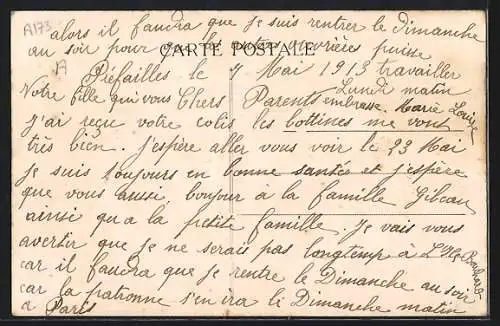 A173
alors il faudra que je suis rentrer le Dimanche
au soir pour que les autres ouvrières puisse
CARTE POSTALE
Préfailles le 7 Mai 1913 travailler
Lundi matin
Votre fille qui vous embrasse. Marie Louise
Chers Parents
j'ai reçu votre colis les bottines me vont
très bien. J'espère aller vous voir le 23 Mai
je suis toujours en bonne santée et j'espère
que vous aussi, bonjour à la famille Gibeau
ainsi qu'a la petite famille. Je vais vous
avertir que je ne serais pas longtemps à L'He
car il faudra que je rentre le Dimanche au soir
car la patronne s'en ira le Dimanche matin
a Paris